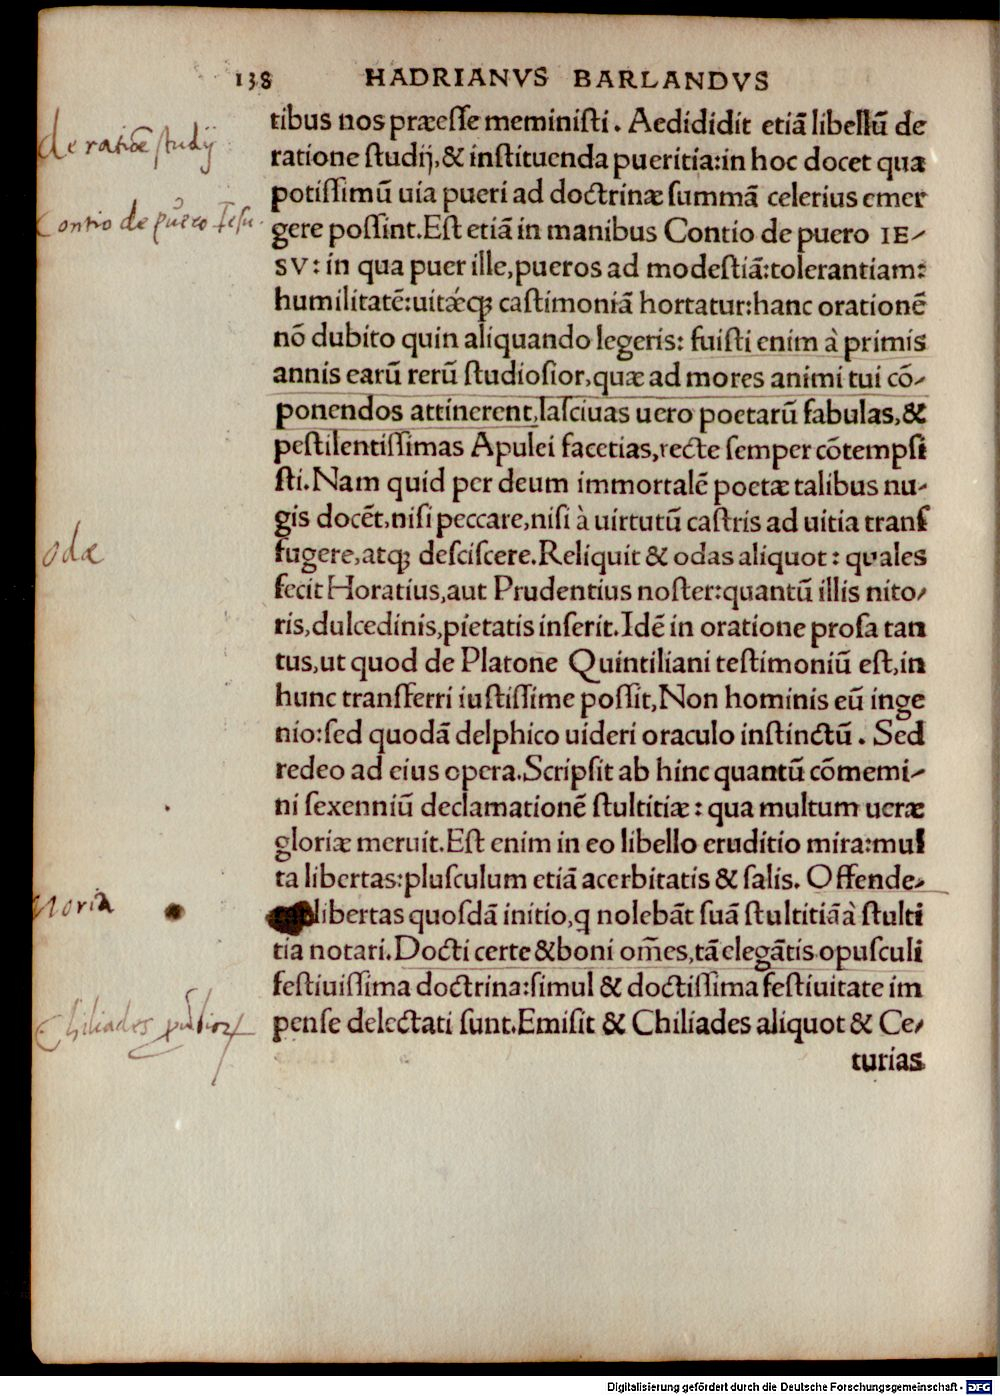 138 HADRIANVS BARLANDVS
tibus nos præesse meministi. Aedididit etiā libellū de
de ratiōe studij
ratione studij,& instituenda pueritia:in hoc docet qua
potissimū uia pueri ad doctrinæ summā celerius emer
Contio de puero Iesu.
gere possint.Est etiā in manibus Contio de puero IE-
SV: in qua puer ille,pueros ad modestiā:tolerantiam:
humilitatē:uitǽq; castimoniā hortatur:hanc orationē
nō dubito quin aliquando legeris: fuisti enim à primis
annis earū rerū studiosior,quæ ad mores animi tui cō-
ponendos attinerent,lasciuas uero poetarū fabulas,&
pestilentissimas Apulei facetias,recte semper cōtempsi
sti.Nam quid per deum immortalē poetæ talibus nu-
gis docēt,nisi peccare,nisi à uirtutū castris ad uitia trans
odæ
fugere,atq; desciscere.Reliquit & odas aliquot: quales
fecit Horatius,aut Prudentius noster:quantū illis nito-
ris,dulcedinis,pietatis inserit.Idē in oratione prosa tan
tus,ut quod de Platone Quintiliani testimoniū est,in
hunc transferri iustissime possit,Non hominis eū inge
nio:sed quodā delphico uideri oraculo instinctū. Sed
redeo ad eius opera.Scripsit ab hinc quantū cōmemi-
ni sexenniū declamationē stultitiæ: qua multum ueræ
gloriæ meruit.Est enim in eo libello eruditio mira:mul
ta libertas:plusculum etiā acerbitatis & salis. Offende-
Moria
libertas quosdā initio,q nolebāt suā stultitiā à stulti
tia notari.Docti certe &boni om̄es,tā elegātis opusculi
festiuissima doctrina:simul & doctissima festiuitate im
Chiliades
pense delectati sunt.Emisit & Chiliades aliquot & Ce-
turias
Digitalisierung gefördert durch die Deutsche Forschungsgemeinschaft - DFG